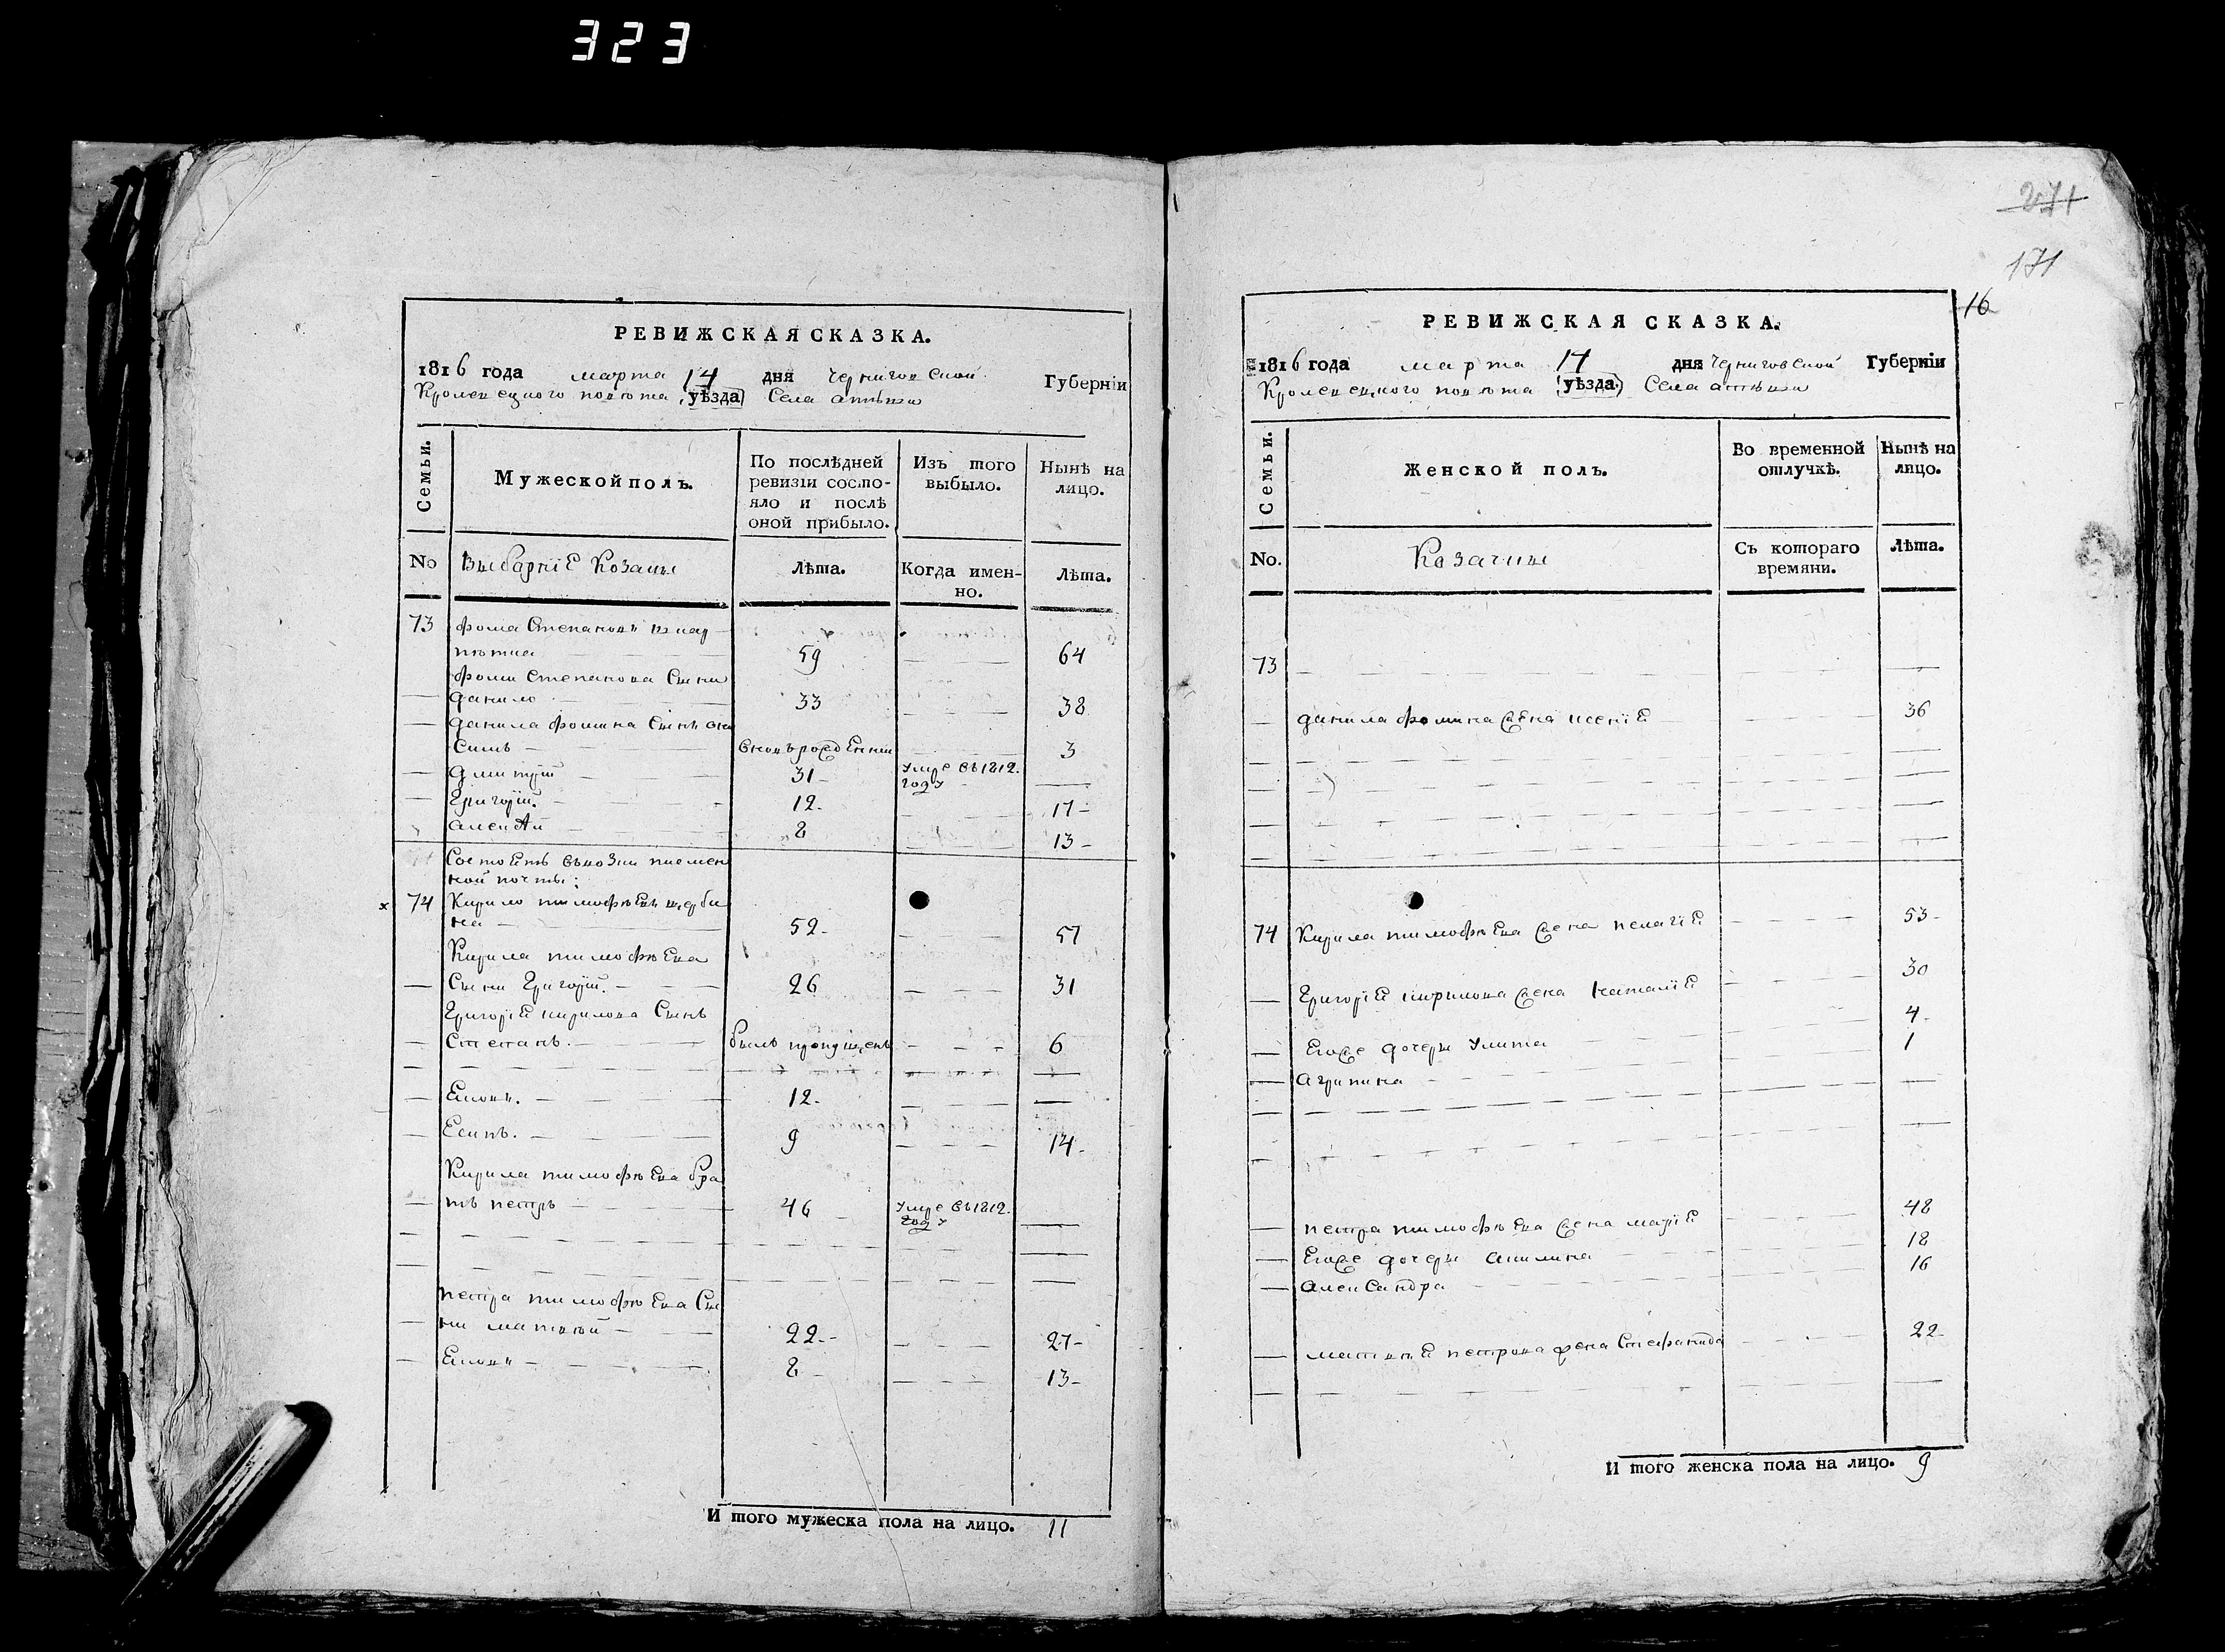 323
РЕВИЖСКАЯ СКАЗКА.
1816 года марта 14 дня Черниговской Губерніи
Кролевецкого повѣта (уѣзда) Села
Семьи.
Мужеской полъ.
По послѣдней
ревизіи состо-
яло и послѣ
оной прибыло.
Изъ того
выбыло.
Нынѣ на
лицо.
No
Выбарніе Козаки
лѣта.
Когда имен-
но.
лѣта.
73 фома Степановъ
59 64
фоми Степанова Сини
данило 33 38
данила фомина Синъ
вновъ рожденни 3
дмитрій 31 умре въ 1812.
году
Григорій. 12 17
алексѣй 8 13
Состоитъ писмен
ной почты:
74 Кирило тимофѣевъ щерби
на 52 57
Кирила тимофѣева
Сини Григорій. 26 31
Григорія кирилова Синъ
Степанъ. былъ пропущенъ 6
12
Есипъ. 9 14
Кирила тимофѣева бра
тъ петръ 46 умре въ 1812.
году
петра тимофѣева Си
ни матвѣй 22 27
8 13
И того мужеска пола на лицо. 11
271
171
16
РЕВИЖСКАЯ СКАЗКА.
1816 года марта 14 дня Черниговской Губерніи
Кролевецкого повѣта (уѣзда) Села
Семьи.
Женской полъ.
Во временной
отлучкѣ.
Нынѣ на
лицо.
No.
Козачки
Съ котораго
времяни.
лѣта.
73
данила фомина жена ксенія 36
74 Кирила тимофѣева жена пелагія 53
Григорія кирилова жена наталія 30
Егоже дочери улита 4
агрипина 1
петра тимофѣева жена марія 48
Егоже дочери акилина 18
александра 16
матвѣя петрова жена Стефанида 22
И того женска пола на лицо. 9